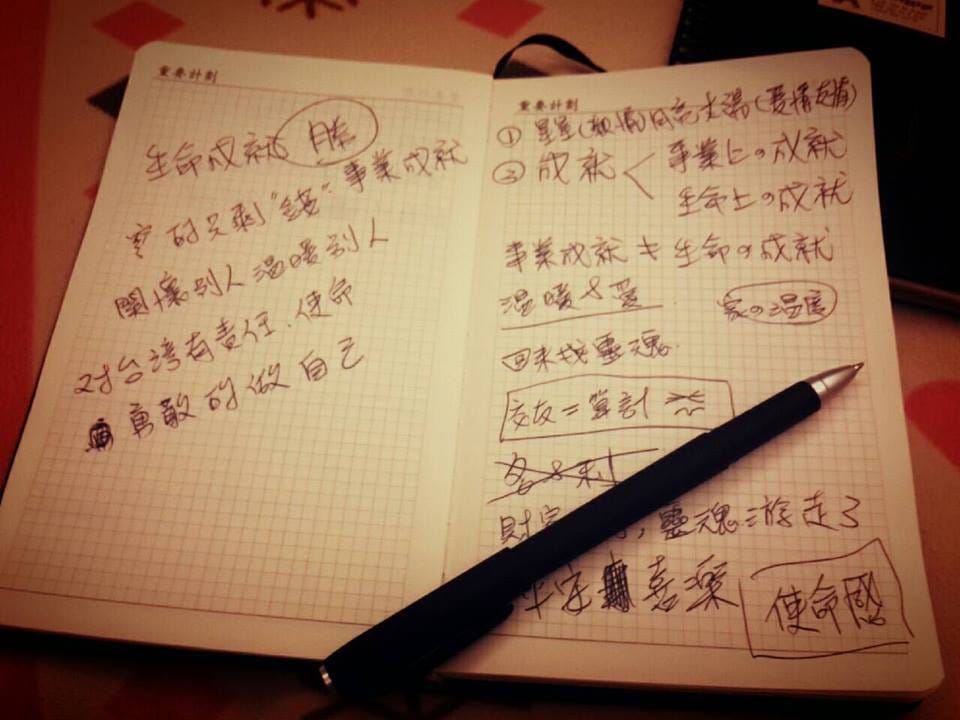 重要計劃
生命成就 勝 事業成就
窮的只剩"錢"
關懷別人溫暖別人
对台湾有責任．使命
勇敢的做自己
重要計劃
① 星星(親情)月亮太陽(愛情友情)
② 成就 < 事業上の成就
生命上の成就
事業成就 ≠ 生命の成就
溫暖&愛
家の溫度
回来找靈魂
交友＝算計
名&利
財富 , 靈魂游走了
平安 喜樂
使命感